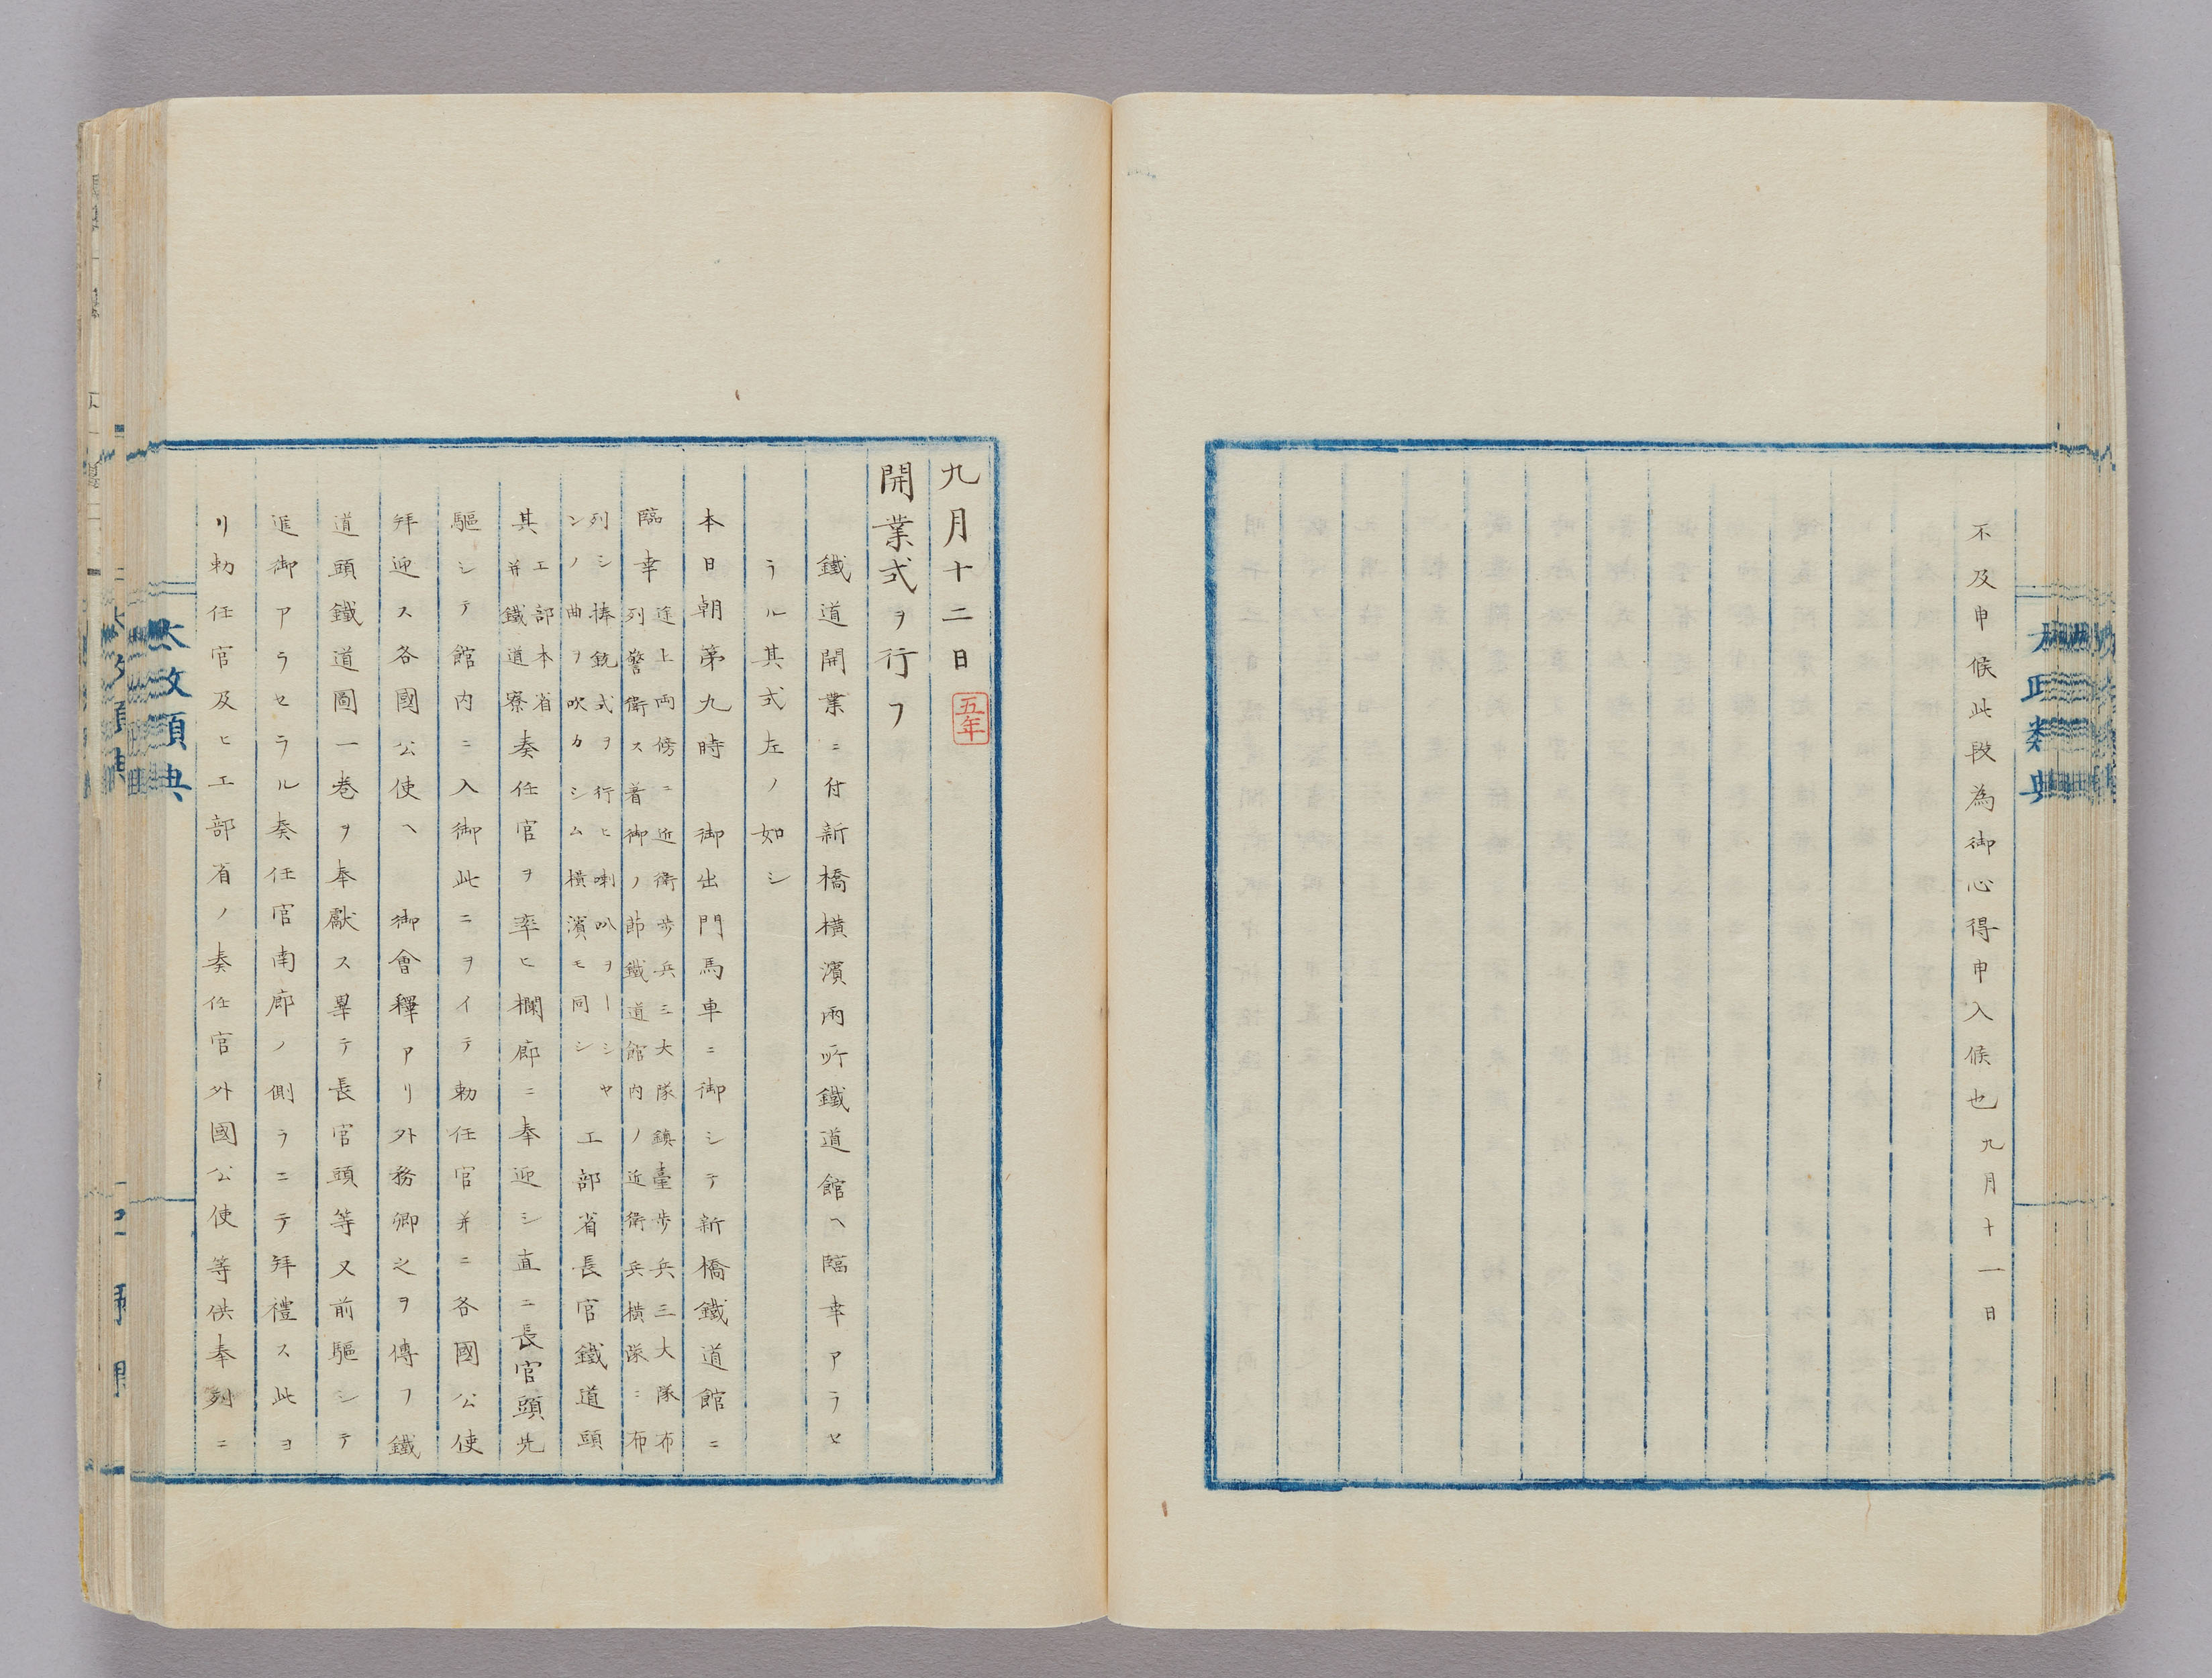 不及申候此段為御心得申入候也九月十一日
太政類典
九月十二日
五年
開業式ヲ行フ
鐵道開業ニ付新橋横濱兩所鐵道館ヘ臨幸アラセ
ラル其式左ノ如シ
本日朝第九時御出門馬車ニ御シテ新橋鐵道館ニ
臨幸
途上両傍ニ近衛歩兵三大隊鎮臺歩兵三大隊布
列警衛ス着御ノ節鐵道館内ノ近衛兵横隊ニ布
列シ捧銃式ヲ行ヒ喇叭ヲーシヤ
ンノ曲ヲ吹カシム横濱モ同シ
工部省長官鐵道頭
其
工部本省
并鐵道寮
奏任官ヲ率ヒ欄廊ニ奉迎シ直ニ長官頭先
驅シテ館内ニ入御此ニヲイテ勅任官并ニ各國公使
拜迎ス各國公使ヘ御會釋アリ外務卿之ヲ傳フ鐵
道頭鐵道圖一巻ヲ奉獻ス畢テ長官頭等又前驅シテ
進御アラセラル奏任官南廊ノ側ラニテ拜禮ス此ヨ
リ勅任官及ヒ工部省ノ奏任官外國公使等供奉列ニ
太政類典